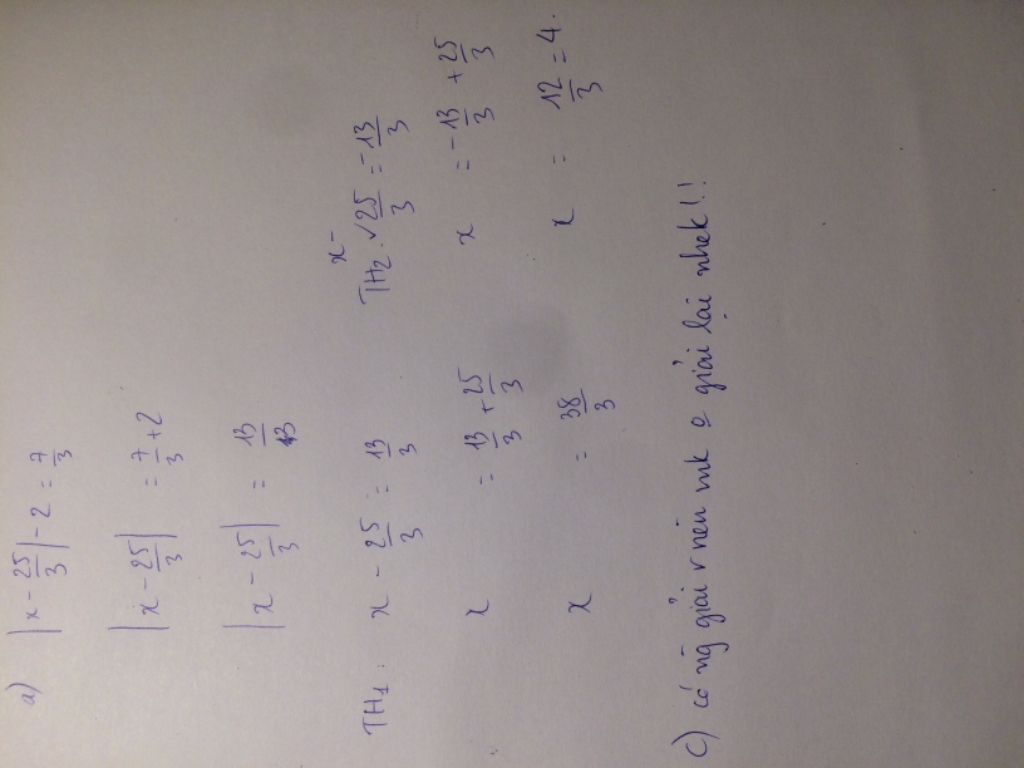 a) |x - 25/3| - 2 = 7/3
|x - 25/3| = 7/3 + 2
|x - 25/3| = 13/3
TH1: x - 25/3 = 13/3
x = 13/3 + 25/3
x = 38/3
TH2: x - 25/3 = -13/3
x = -13/3 + 25/3
x = 12/3 = 4.
c) có ng̃ giải r nên mk o giải lại nhek!!